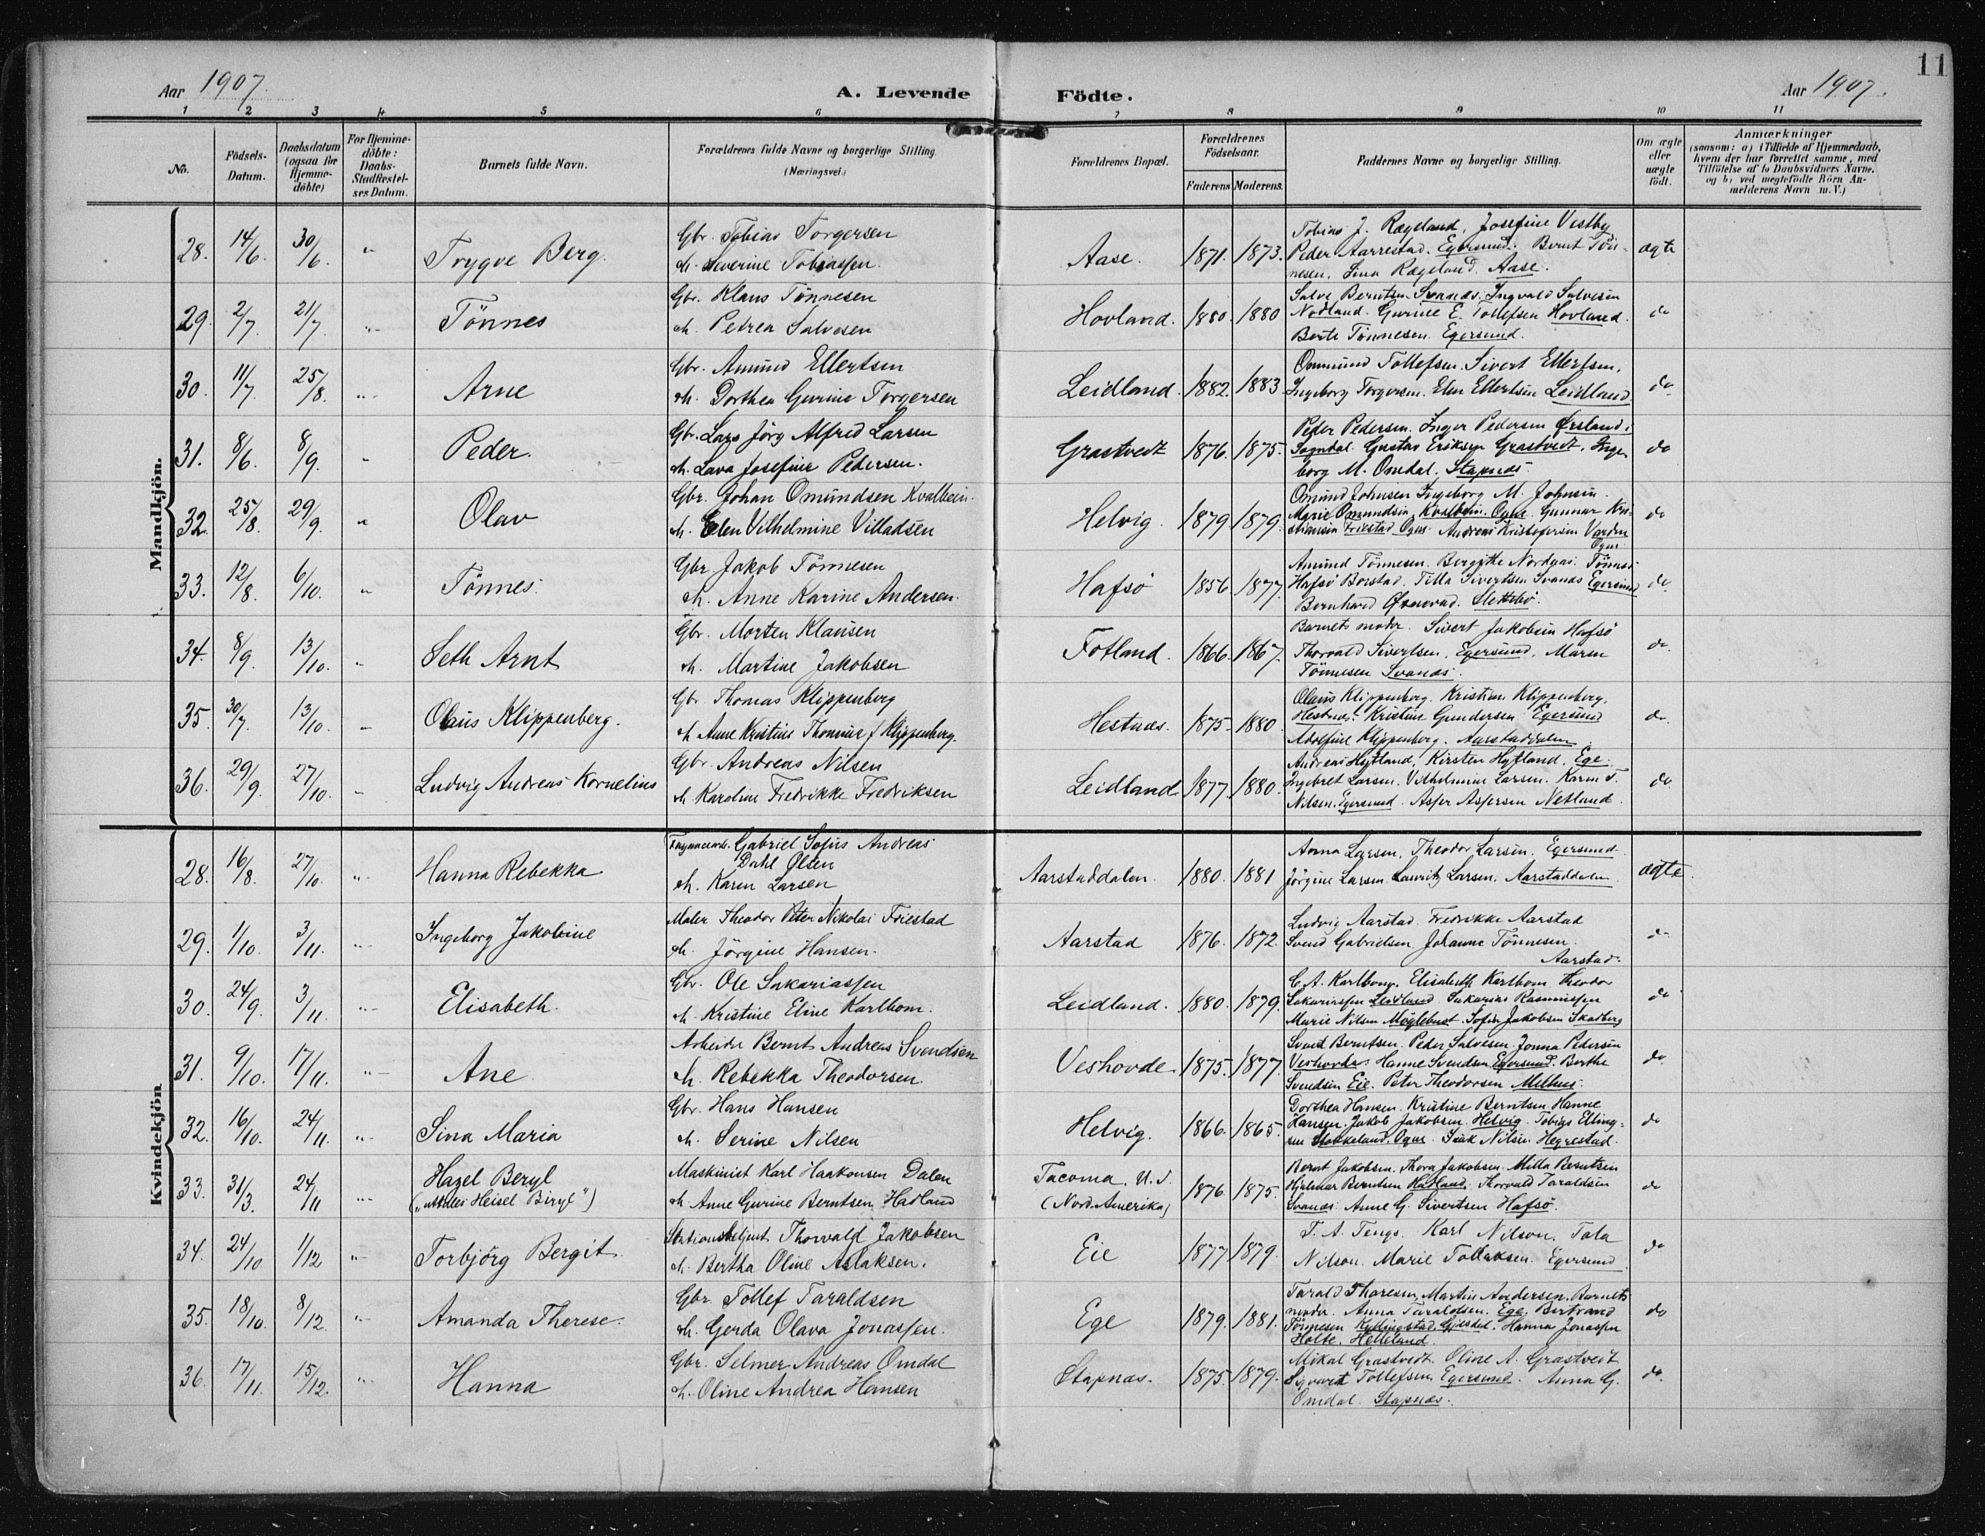 11
Aar 1907. A. Levende Födte. Aar 1907.
1 2 3 4 5 6 7 8 9 10 11
No. Födsels-Datum. Daabsdatum (ogsaa for Hjemme-döbte) For Hjemme-döbte: Daabs-Stadfæstel-ses Datum. Barnets fulde Navn. Forældrenes fulde Navne og borgerlige Stilling. (Næringsvei.) Forældrenes Bopæl. Forældrenes Födselsaar. Faderens Moderens. Faddernes Navne og borgerlige Stilling. Om ægte eller uægte födt. Anmærkninger
(saasom: a) i Tilfælde af Hjemmedaab,
hvem der har forrettet samme, med
Tilföielse af to Daabsvidners Navne.
og b) ved uegtefödte Börn An-
melderens Navn m. V.)
Mandkjön.
28. 14/6 30/6 " Trygve Berg. Gbr. Tobias Torgersen
h. Severine Tobiassen. Aase. 1871. 1873. Tobias J. Rægeland, Josefine Vestby,
Peder Aarrestad. Egersund. Bernt Tön-
nesen, Sina Rægeland. Aase. ægte
29. 2/7 21/7 " Tönnes Gbr. Klaus Tönnesen
h. Petrea Salvesen Hovland. 1880. 1880 Salve Berntsen Svanæs. Ingvald Salvesen
Nodland. Gurine E. Tollefsen Hovland.
Berte Tönnesen. Egersund. do
30. 11/7 25/8 " Arne Gbr. Amund Ellertsen
h. Dorthea Gurine Torgersen Leidland. 1882. 1883 Ommund Tollefsen. Sivert Ellertsen,
Ingeborg Torgersen. Elen Ellertsen Leidland do
31. 8/6 8/9 " Peder. Gbr. Lars Jörg Alfred Larsen
h. Lava Josefine Pedersen. Grastvedt 1876. 1875. Peder Pedersen. Inger Pedersen Ørsland i
Sogndal. Gustav Eriksen Grastvedt. Inge
borg M. Omdal, Stapnæs. do
32. 25/8 29/9 " Olav Gbr. Johan Omundsen Kvalbein.
h. Elen Vilhelmine Villadsen Helvig. 1879. 1879. Omund Johnsen Ingeborg M. Johnsen.
Marie Omundsen, Kvalbein. Ogne. Gunnar Kri-
stiansen Friestad Ogne. Andreas Kristofersen Varden
Ogne. do
33. 12/8 6/10. " Tönnes. Gbr. Jakob Tönnesen
h. Anne Karine Andersen. Hafsö 1856. 1877. Amund Tönnesen. Bergitte Nordgaa. Tönnes
Hafsö Borstad. Tilla Sivertsen Svanæs Egersund
Bernhard Slettebö. do.
34. 8/9 13/10. " Seth Arnt Gbr. Morten Klausen
h. Martine Jakobsen Fotland. 1866. 1867. Barnets moder. Sivert Jakobsen Hafsö
Thorvald Sivertsen, Egersund. Maren
Tönnesen Svanæs. do
35. 30/7 13/10. " Olaus Klippenberg. Gbr. Thomas Klippenberg
h. Anne Kristine Thomine f. Klippenberg. Hestnæs. 1875. 1880. Olaus Klippenberg. Kristian Klippenberg.
Hestnæs. Kristine Gundersen Egersund
Adolfine Klippenberg. Aarstaddalen do
36. 29/9. 27/10. " Ludvig Andreas Kornelius Gbr. Andreas Nilsen
h. Karoline Fredrikke Fredriksen Leidland 1877. 1880. Andreas Hytland, Kirsten Hytland, Ege.
Ingebret Larsen. Vilhelmine Larsen. Karen T.
Nilsen. Egersund. Asser Assersen Netland. do
Kvindekjön
28. 16/8. 27/10. " Hanna Rebekka Gabriel Sofus Andreas
Dahl Olsen
h. Karen Larsen Aarstaddalen. 1880. 1881 Anna Larsen, Theodor Larsen, Egersund.
Jörgine Larsen Lauritz Larsen. Aarstaddalen ægte.
29. 1/10. 3/11. " Ingeborg Jakobine Maler Theodor Peter Nikolai Friestad
h. Jörgine Hansen. Aarstad 1876. 1872. Ludvig Aarstad. Fredrikke Aarstad
Svend Gabrielsen Johanne Tönnesen.
Aarstad. do
30. 24/9. 3/11. " Elisabeth. Gbr. Ole Sakariassen
h. Kristine Eline Karlbom. Leidland. 1880. 1879. C. A. Karlbom. Elisabeth Karlbom Theodor
Sakariassen Leidland Sakarias Rasmussen
Marie Nilsen Möglebust. Sofie Jakobsen Skadberg do
31. 9/10. 17/11. " Ane Arbeider Bernt Andreas Svendsen
h. Rebekka Theodorsen. Veshovde. 1875. 1877. Svend Berntsen. Peder Salvesen. Jonna Pedersen
Veshovde. Hanne Svendsen Egersund. Berthe
Svendsen Eie. Peter Theodorsen Milhus. do
32. 16/10. 24/11. " Sina Maria Gbr. Hans Hansen
h. Serine Nilsen Helvig. 1866. 1865. Dorthea Hansen. Kristine Berntsen. Hanne
Hansen. Jakob Jakobsen. Helvig. Tobias Elling-
sen Stokkeland. Ogne. Isak Nilsen Hegrestad. do
33. 31/3. 24/11 " Hazel Beryl
("uttales Heisel Biryl") Maskinist Karl Haakonsen Dalen
h. Anne Gurine Berntsen Hadland Tacoma. U. S.
(Nord. Amerika) 1876. 1875. Bernt Jakobsen. Thora Jakobsen. Milla Berntsen
Hjalmar Berntsen Hadland. Thorvald Taraldsen
Svanæs. Anne G. Sivertsen Hafsö. do
34. 24/10. 1/12 " Torbjörg Bergit. Stationsbetjent Thorvald Jakobsen
h. Bertha Oline Aslaksen. Eie 1877. 1879. T. A. Tengs. Karl Nilson, Tala
Nilson. Marie Tollaksen. Egersund. do
35. 18/10. 8/12. " Amanda Therese. Gbr. Tollef Taraldsen
h. Gerda Olava Jonassen. Ege 1879. 1881. Tarald Thoresen, Martin Andersen. Barnets
moder. Anna Taraldsen. Ege. Bertrand
Tönnesen Kyllingstad Gjesdal. Hanna Jonassen
Holte. Helleland. do
36. 17/11. 15/12. " Hanna Gbr. Selmer Andreas Omdal
h. Oline Andrea Hansen Stapnæs. 1875. 1879. Mikal Grastvedt. Oline A. Grastvedt
Tollefsen Egersund. Anna G.
Omdal. Stapnæs. do.